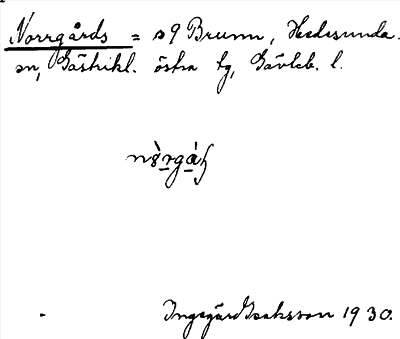 Norrgårds = s9 Brunn, Hedesunda
sn, Gästrikl. östra tg, Gävleb. l.
Ingegärd Isaksson 1930.